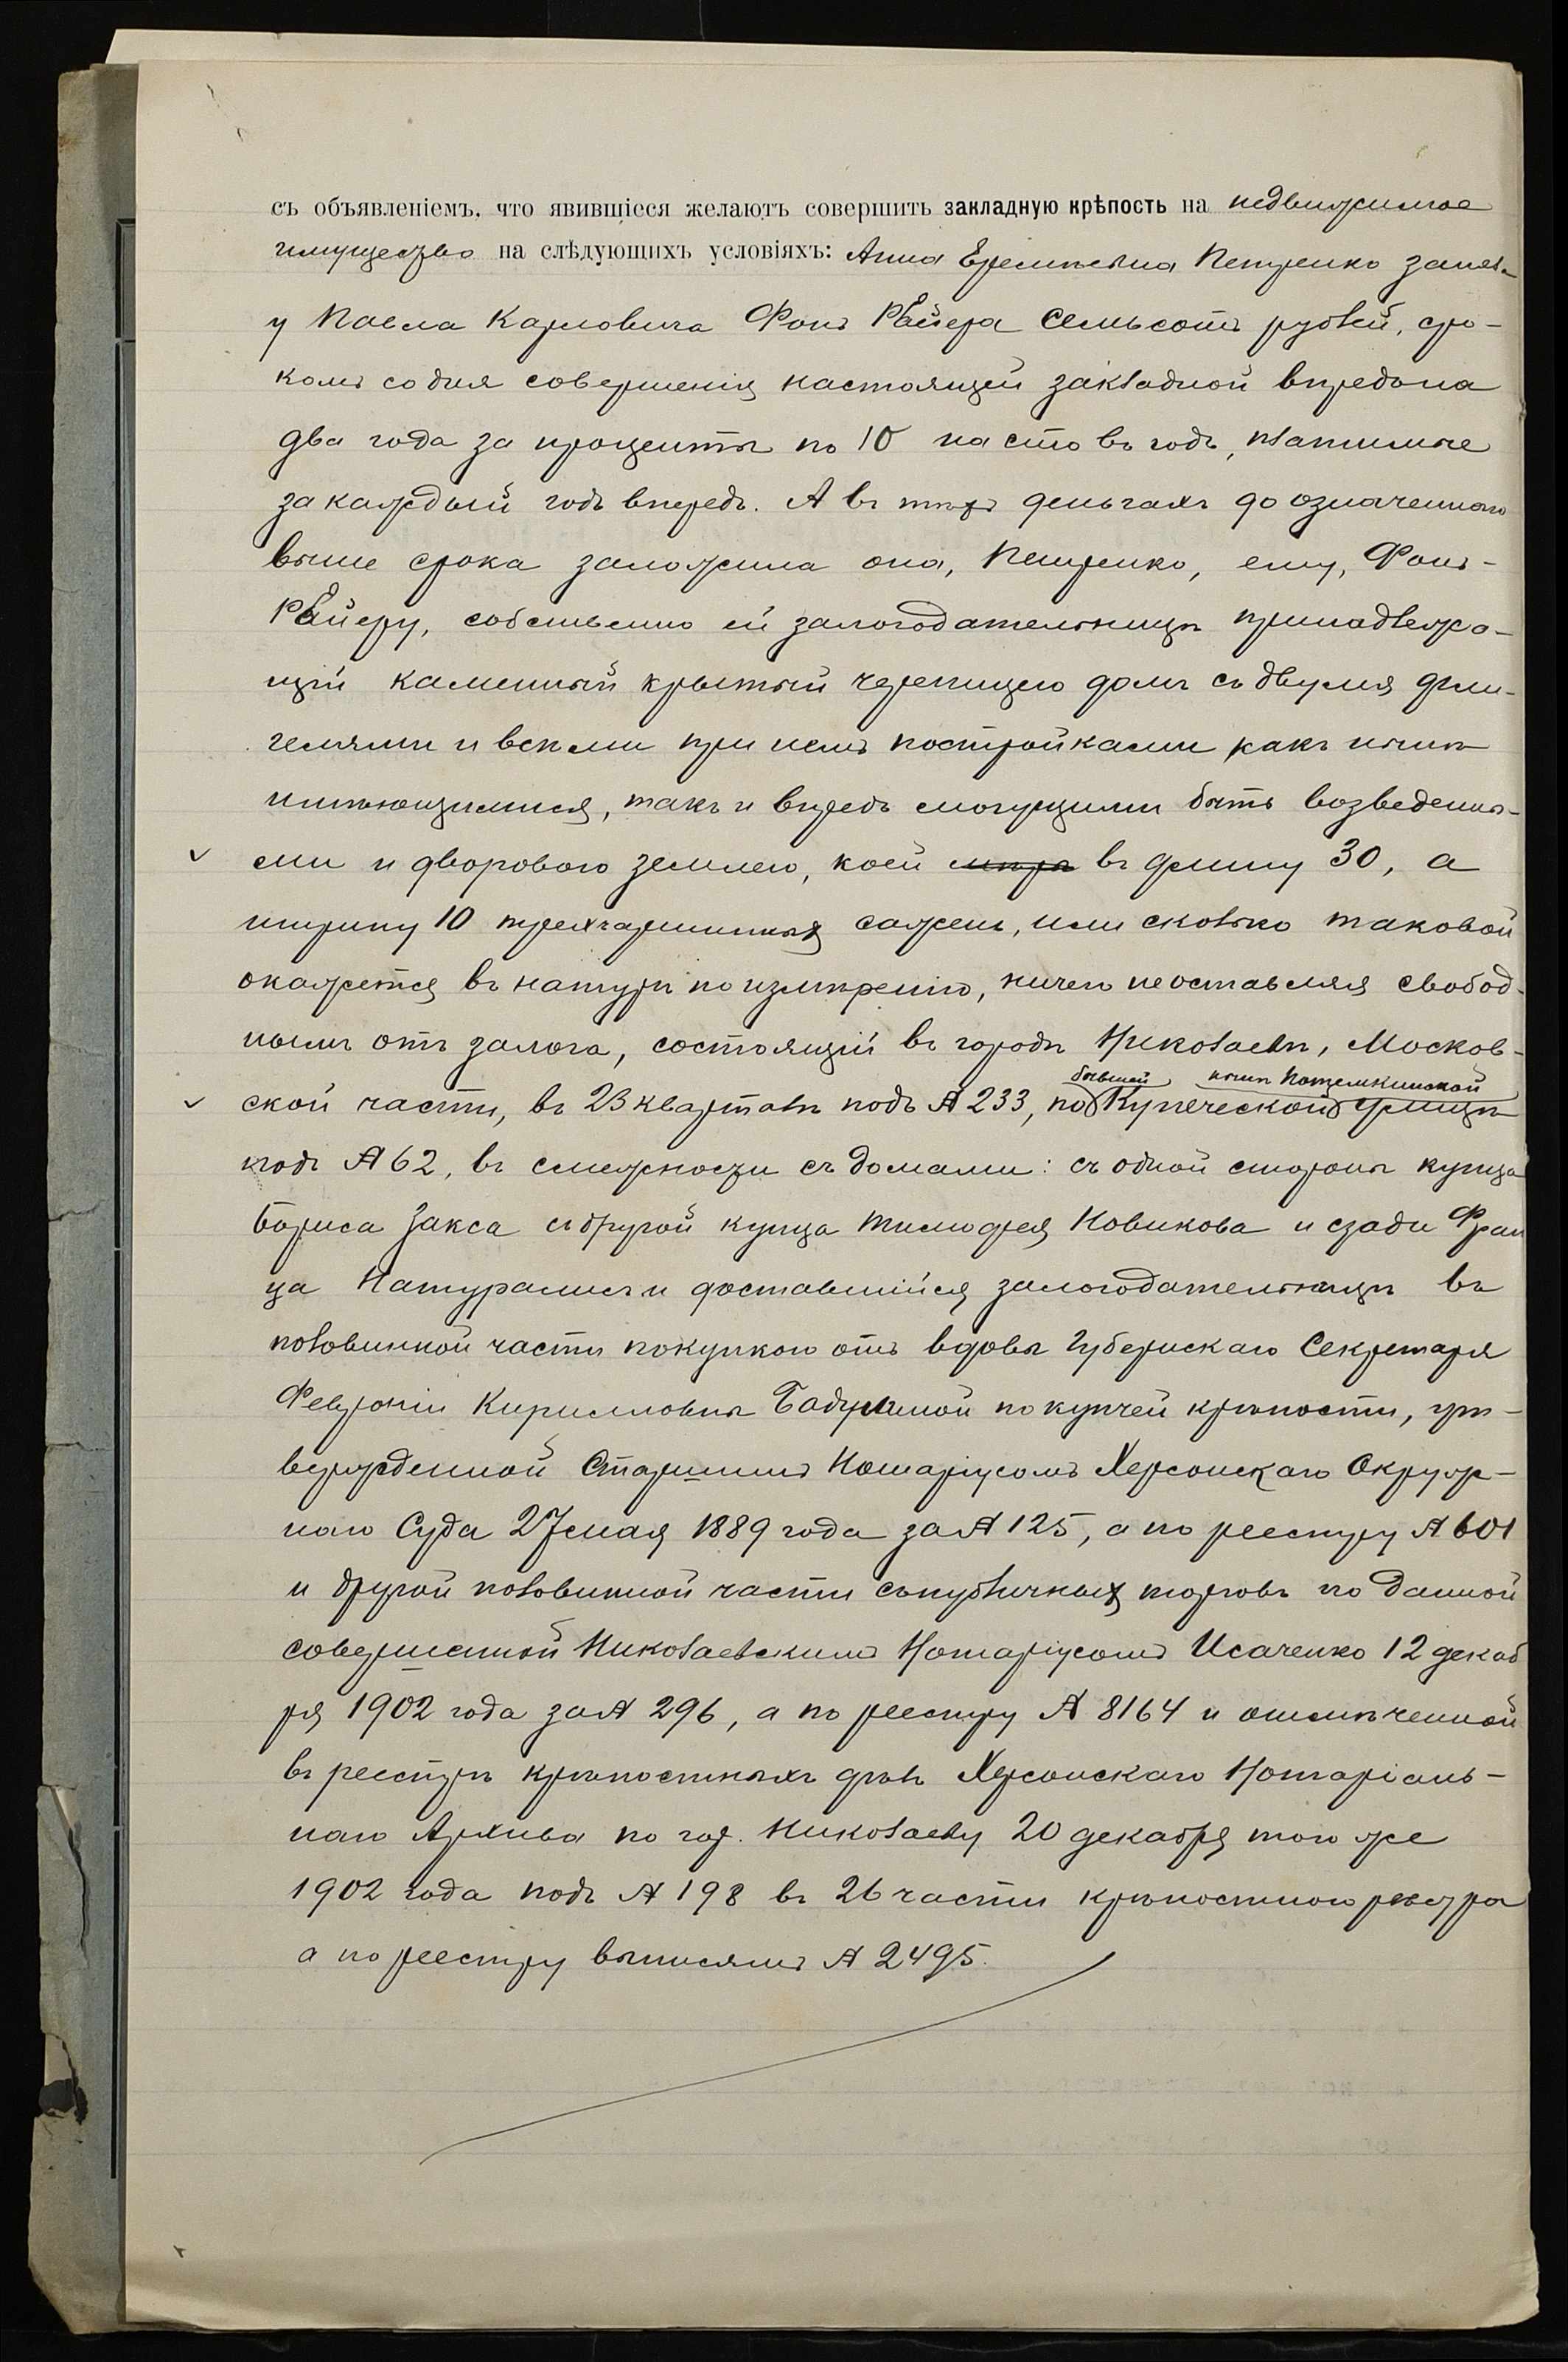 съ объявленіемъ, что явившіеся желаютъ совершить закладную крѣпость на недвижимое
имущество на слѣдующихъ условіяхъ: Анна Еремѣевна Петренко заняла
у Павла Карловича Фонъ Рейера семьсотъ рублей, сро-
комъ со дня совершенія настоящей закладной впредь на
два года за проценты по 10 на сто въ годъ, платимые
за каждый годъ впередъ. А въ тѣхъ деньгахъ до означеннаго
выше срока заложила она, Петренко, ему, Фонъ-
Рейеру, собственно ей залогодательницѣ принадлежа-
щій каменный крытый черепицею домъ съ двумя фли-
гелями и всѣми при немъ постройками какъ нынѣ
имѣющимися, такъ и впредь могущими быть возведены-
ми и дворовою землею, коей мѣрѣ въ длину 30, а
ширину 10 трехъаршинныхъ сажень, или сколько таковой
окажется въ натурѣ по измѣренію, ничего не оставляя свобод-
нымъ отъ залога, состоящій въ городѣ Николаевѣ, Москов-
бывшей нынѣ Потемкинской
ской части, въ 23 кварталѣ подъ № 233, по Купеческой улицѣ
подъ № 62, въ смежности съ домами: съ одной стороны купца
Бориса Закса съ другой купца Тимофея Новикова и сзади Фран
ца Натуралисъ и доставшійся залогодательницѣ въ
половинной части покупкою отъ вдовы Губернскаго Секретаря
Февроніи Кирилловны Бадулиной по купчей крѣпости, ут-
вержденной Старшимъ Нотаріусомъ Херсонскаго Окруж-
наго Суда 27 мая 1889 года за № 125, а по реестру № 601
и другой половинной части съ публичныхъ торговъ по данной
совершенной Николаевскимъ Нотаріусомъ Исаченко 12 декаб
ря 1902 года за № 296, а по реестру № 8164 и отмѣченной
въ реестрѣ крѣпостныхъ дѣлъ Херсонскаго Нотаріаль-
наго Архива по гор. Николаеву 20 декабря того же
1902 года подъ № 198 въ 26 части крѣпостного реестра
а по реестру выписямъ № 2495.